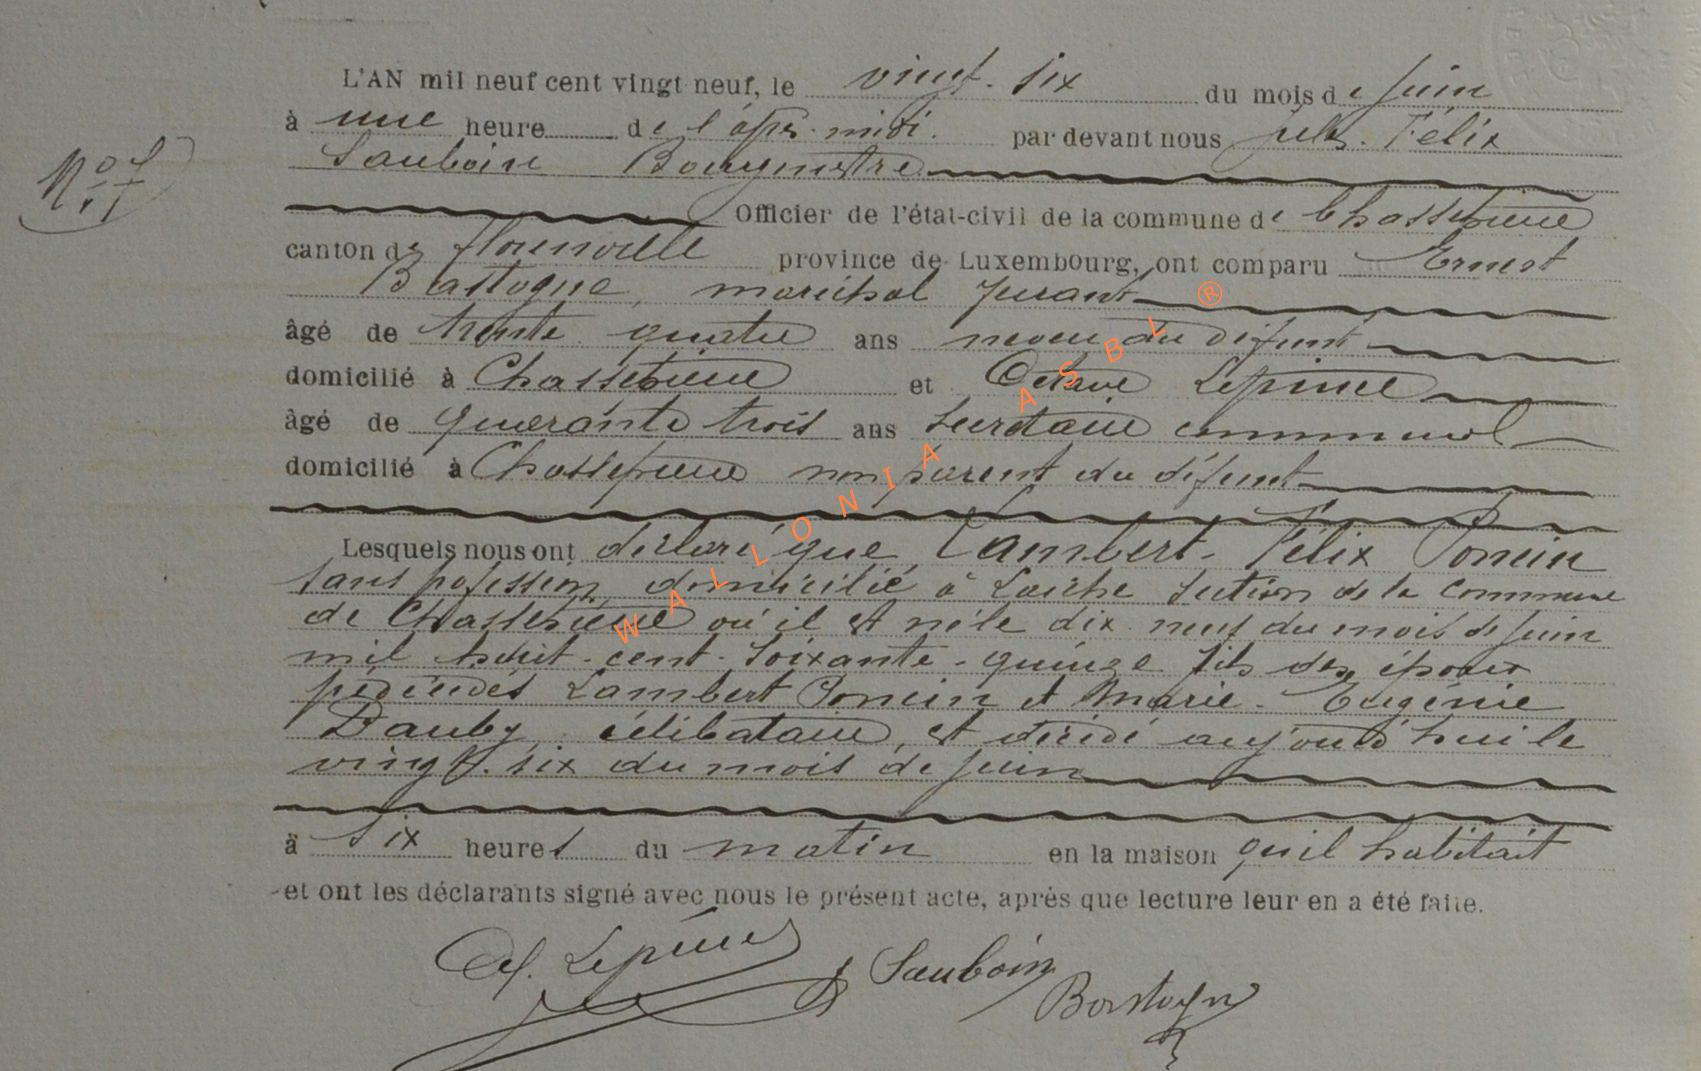 L'AN mil neuf cent vingt neuf, le vingt-six du mois de juin
à une heure de l'après-midi. par devant nous Jules-Félix
Sauboin Bourgmestre
N° 7
Officier de l'état-civil de la commune de Chassepierre
canton de Florenville province de Luxembourg, ont comparu Ernest
Bastogne, maréchal ferant
âgé de trente quatre ans neveu du défunt
domicilié à Chassepierre et Octave Lepine
âgé de quarante trois ans secrétaire communal
domicilié à Chassepierre non parent du défunt
Lesquels nous ont déclaré que Lambert-Félix Poncin
sans profession, domicilié à Laiche section de la commune
de Chassepierre où il est né le dix neuf du mois de juin
mil huit-cent-soixante-quinze fils des époux
Lambert Poncin et Marie-Eugénie
Dauby, célibataire, est décédé aujourd'hui le
vingt-six du mois de juin
à six heures du matin en la maison qu'il habitait
et ont les déclarants signé avec nous le présent acte, après que lecture leur en a été faite.
Lepine Sauboin
Bastogne
WALLONIA ASBL ®